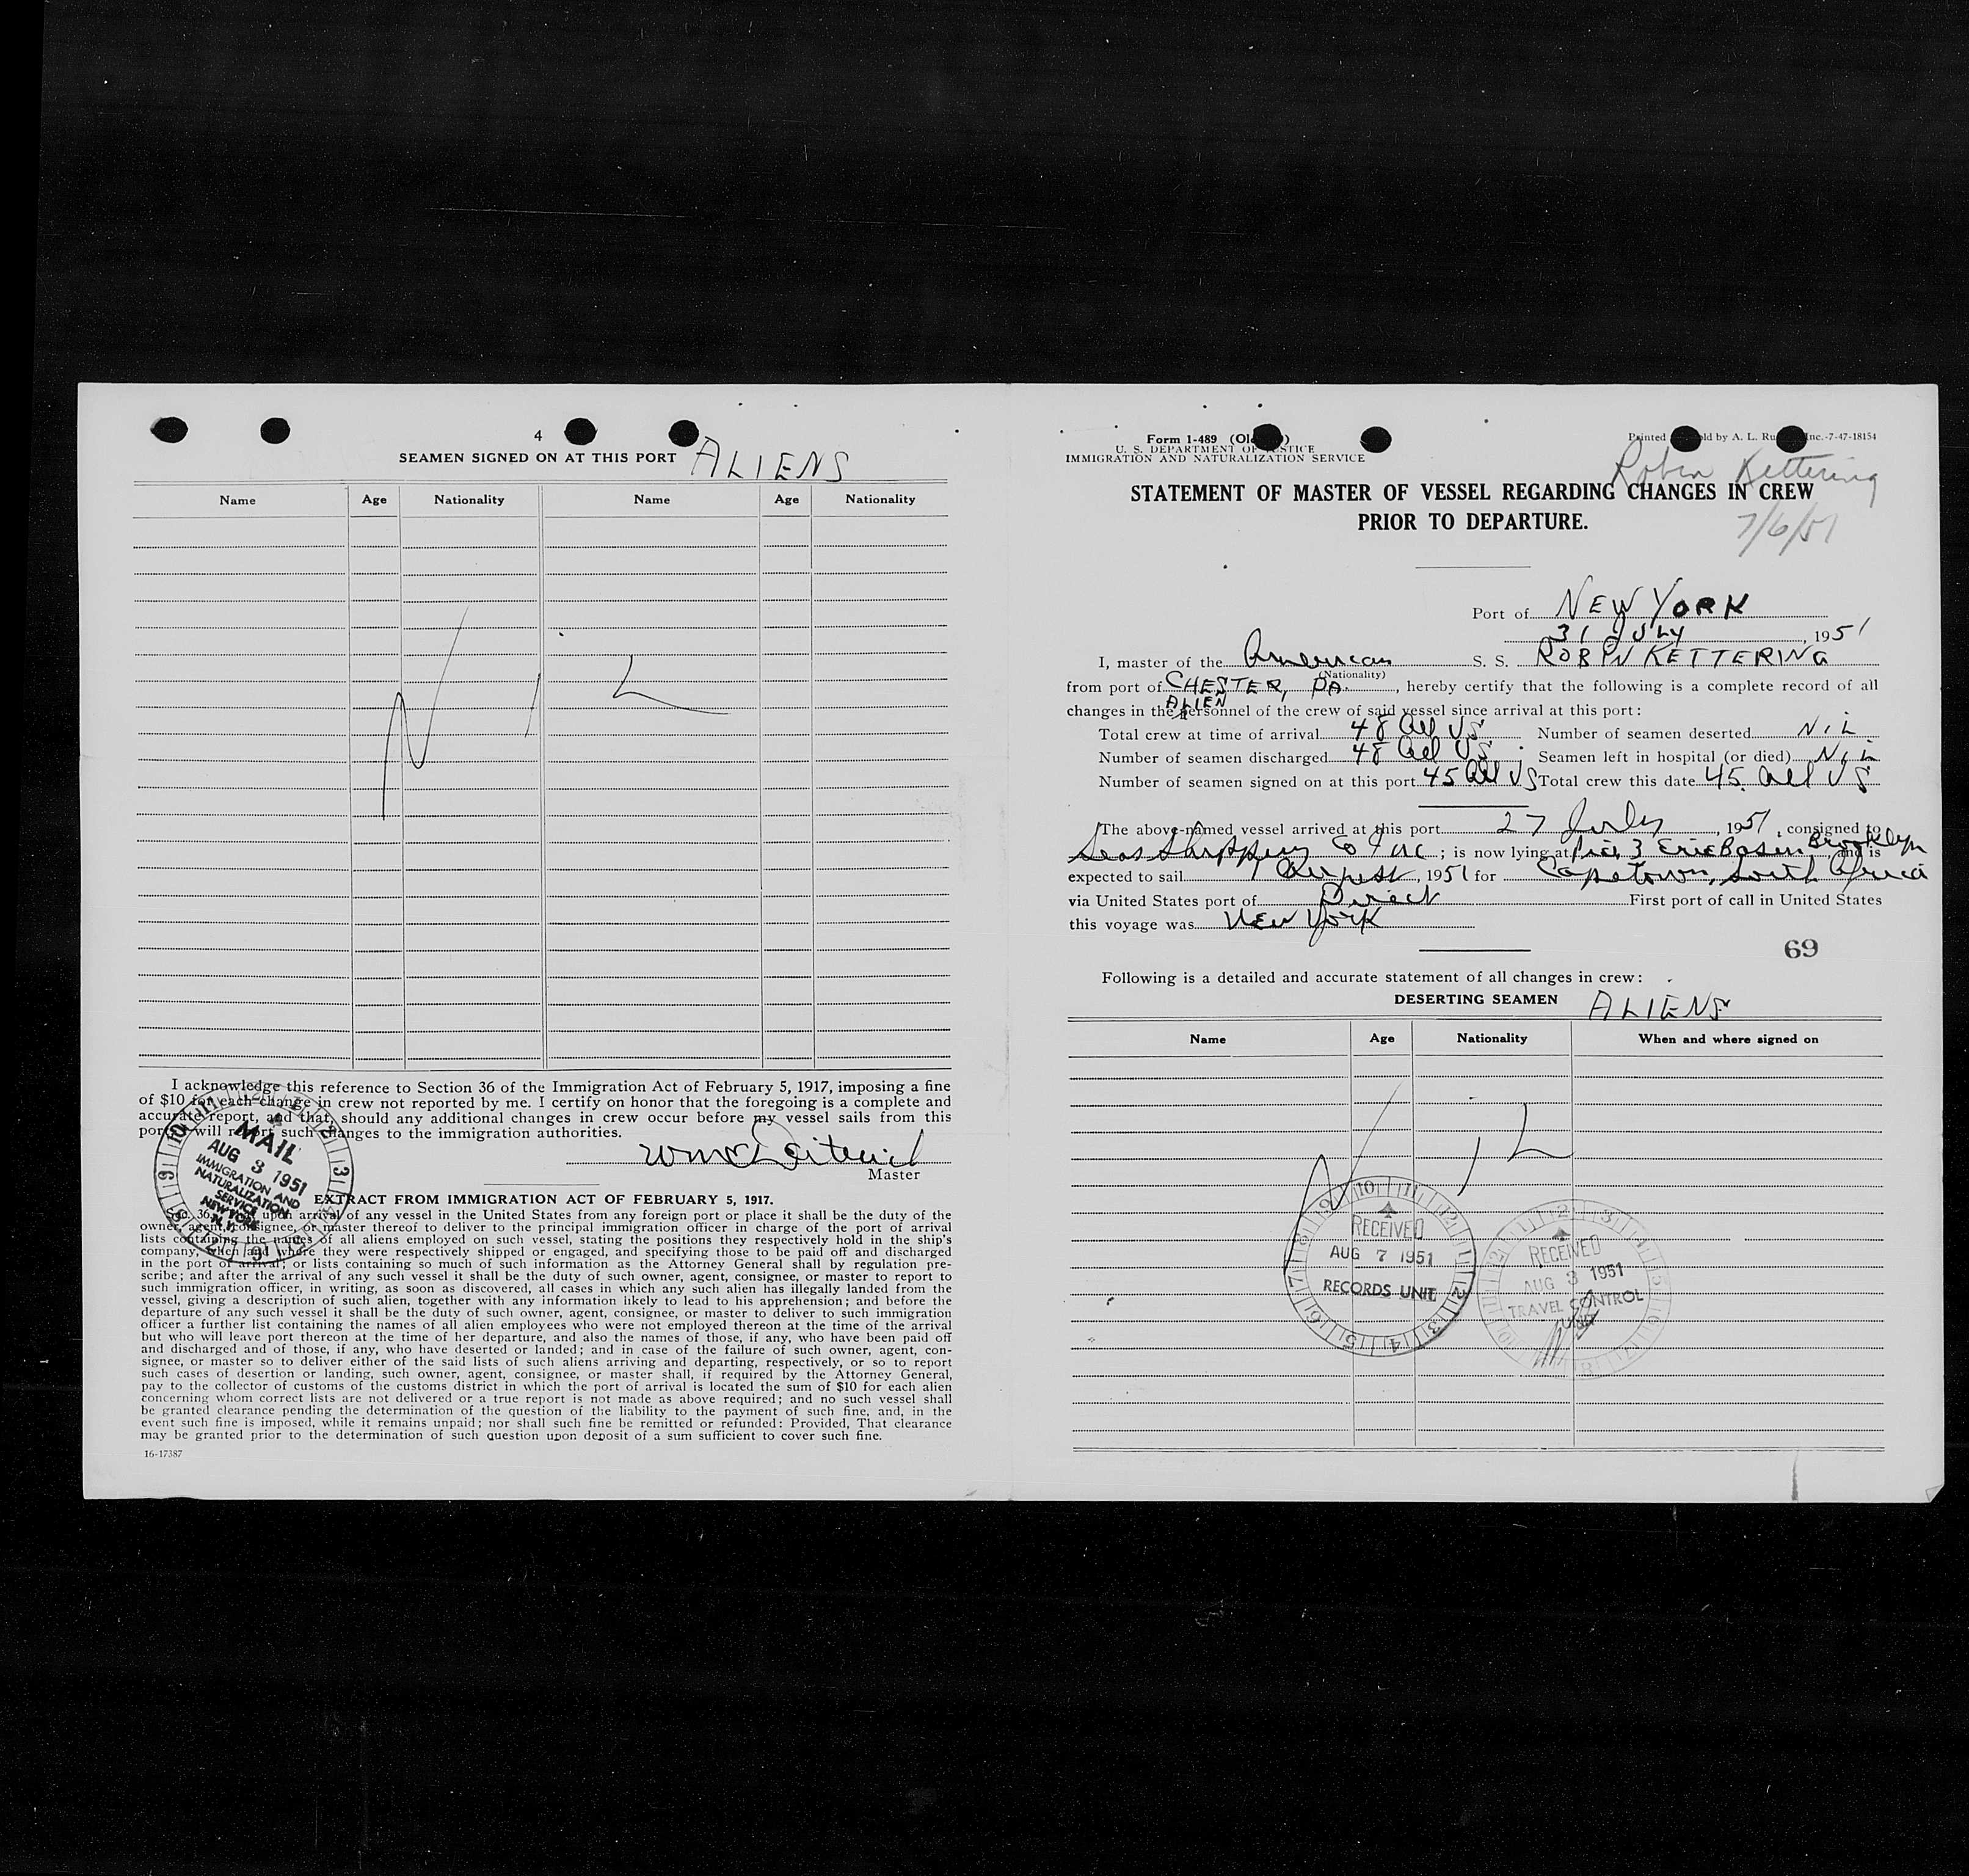 4
SEAMEN SIGNED ON AT THIS PORT ALIENS
Name Age Nationality Name Age Nationality
N i L
I acknowledge this reference to Section 36 of the Immigration Act of February 5, 1917, imposing a fine
of $10 for each change in crew not reported by me. I certify on honor that the foregoing is a complete and
accurate report, and that, should any additional changes in crew occur before my vessel sails from this
port I will report such changes to the immigration authorities.
Master
MAIL
AUG 3 1951
IMMIGRATION AND
NATURALIZATION
SERVICE
NEW YORK
N.Y.
EXTRACT FROM IMMIGRATION ACT OF FEBRUARY 5, 1917.
Sec. 36. upon arrival of any vessel in the United States from any foreign port or place it shall be the duty of the
owner, agent, consignee, or master thereof to deliver to the principal immigration officer in charge of the port of arrival
lists containing the names of all aliens employed on such vessel, stating the positions they respectively hold in the ship's
company, when and where they were respectively shipped or engaged, and specifying those to be paid off and discharged
in the port of arrival; or lists containing so much of such information as the Attorney General shall by regulation pre-
scribe; and after the arrival of any such vessel it shall be the duty of such owner, agent, consignee, or master to report to
such immigration officer, in writing, as soon as discovered, all cases in which any such alien has illegally landed from the
vessel, giving a description of such alien, together with any information likely to lead to his apprehension; and before the
departure of any such vessel it shall be the duty of such owner, agent, consignee, or master to deliver to such immigration
officer a further list containing the names of all alien employees who were not employed thereon at the time of the arrival
but who will leave port thereon at the time of her departure, and also the names of those, if any, who have been paid off
and discharged and of those, if any, who have deserted or landed; and in case of the failure of such owner, agent, con-
signee, or master so to deliver either of the said lists of such aliens arriving and departing, respectively, or so to report
such cases of desertion or landing, such owner, agent, consignee, or master shall, if required by the Attorney General,
pay to the collector of customs of the customs district in which the port of arrival is located the sum of $10 for each alien
concerning whom correct lists are not delivered or a true report is not made as above required; and no such vessel shall
be granted clearance pending the determination of the question of the liability to the payment of such fine, and, in the
event such fine is imposed, while it remains unpaid; nor shall such fine be remitted or refunded: Provided, That clearance
may be granted prior to the determination of such question upon deposit of a sum sufficient to cover such fine.
16-17387
Form 1-489
U. S. DEPARTMENT OF JUSTICE
IMMIGRATION AND NATURALIZATION SERVICE
Printed ld by A. L. Inc.-7-47-18154
Robin Kettering
STATEMENT OF MASTER OF VESSEL REGARDING CHANGES IN CREW
PRIOR TO DEPARTURE.
7/6/51
Port of NEW YORK
31 JULY, 1951
I, master of the American S. S. ROBIN KETTERING
(Nationality)
from port of CHESTER, PA., hereby certify that the following is a complete record of all
ALIEN
changes in the personnel of the crew of said vessel since arrival at this port:
Total crew at time of arrival 48 All US Number of seamen deserted NiL
Number of seamen discharged 48 All US Seamen left in hospital (or died) NiL
Number of seamen signed on at this port 45 All US Total crew this date 45 All US
The above-named vessel arrived at this port 27 July, 1951, consigned to
Seas Shipping Co Inc; is now lying at Pier 3 Erie Basin Brooklyn, and is
expected to sail August, 1951 for Capetown, South Africa
via United States port of Direct First port of call in United States
this voyage was New York
69
Following is a detailed and accurate statement of all changes in crew:
DESERTING SEAMEN ALIENS
Name Age Nationality When and where signed on
N i L
RECEIVED
AUG 7 1951
RECORDS UNIT
RECEIVED
AUG 3 1951
TRAVEL CONTROL
UNIT